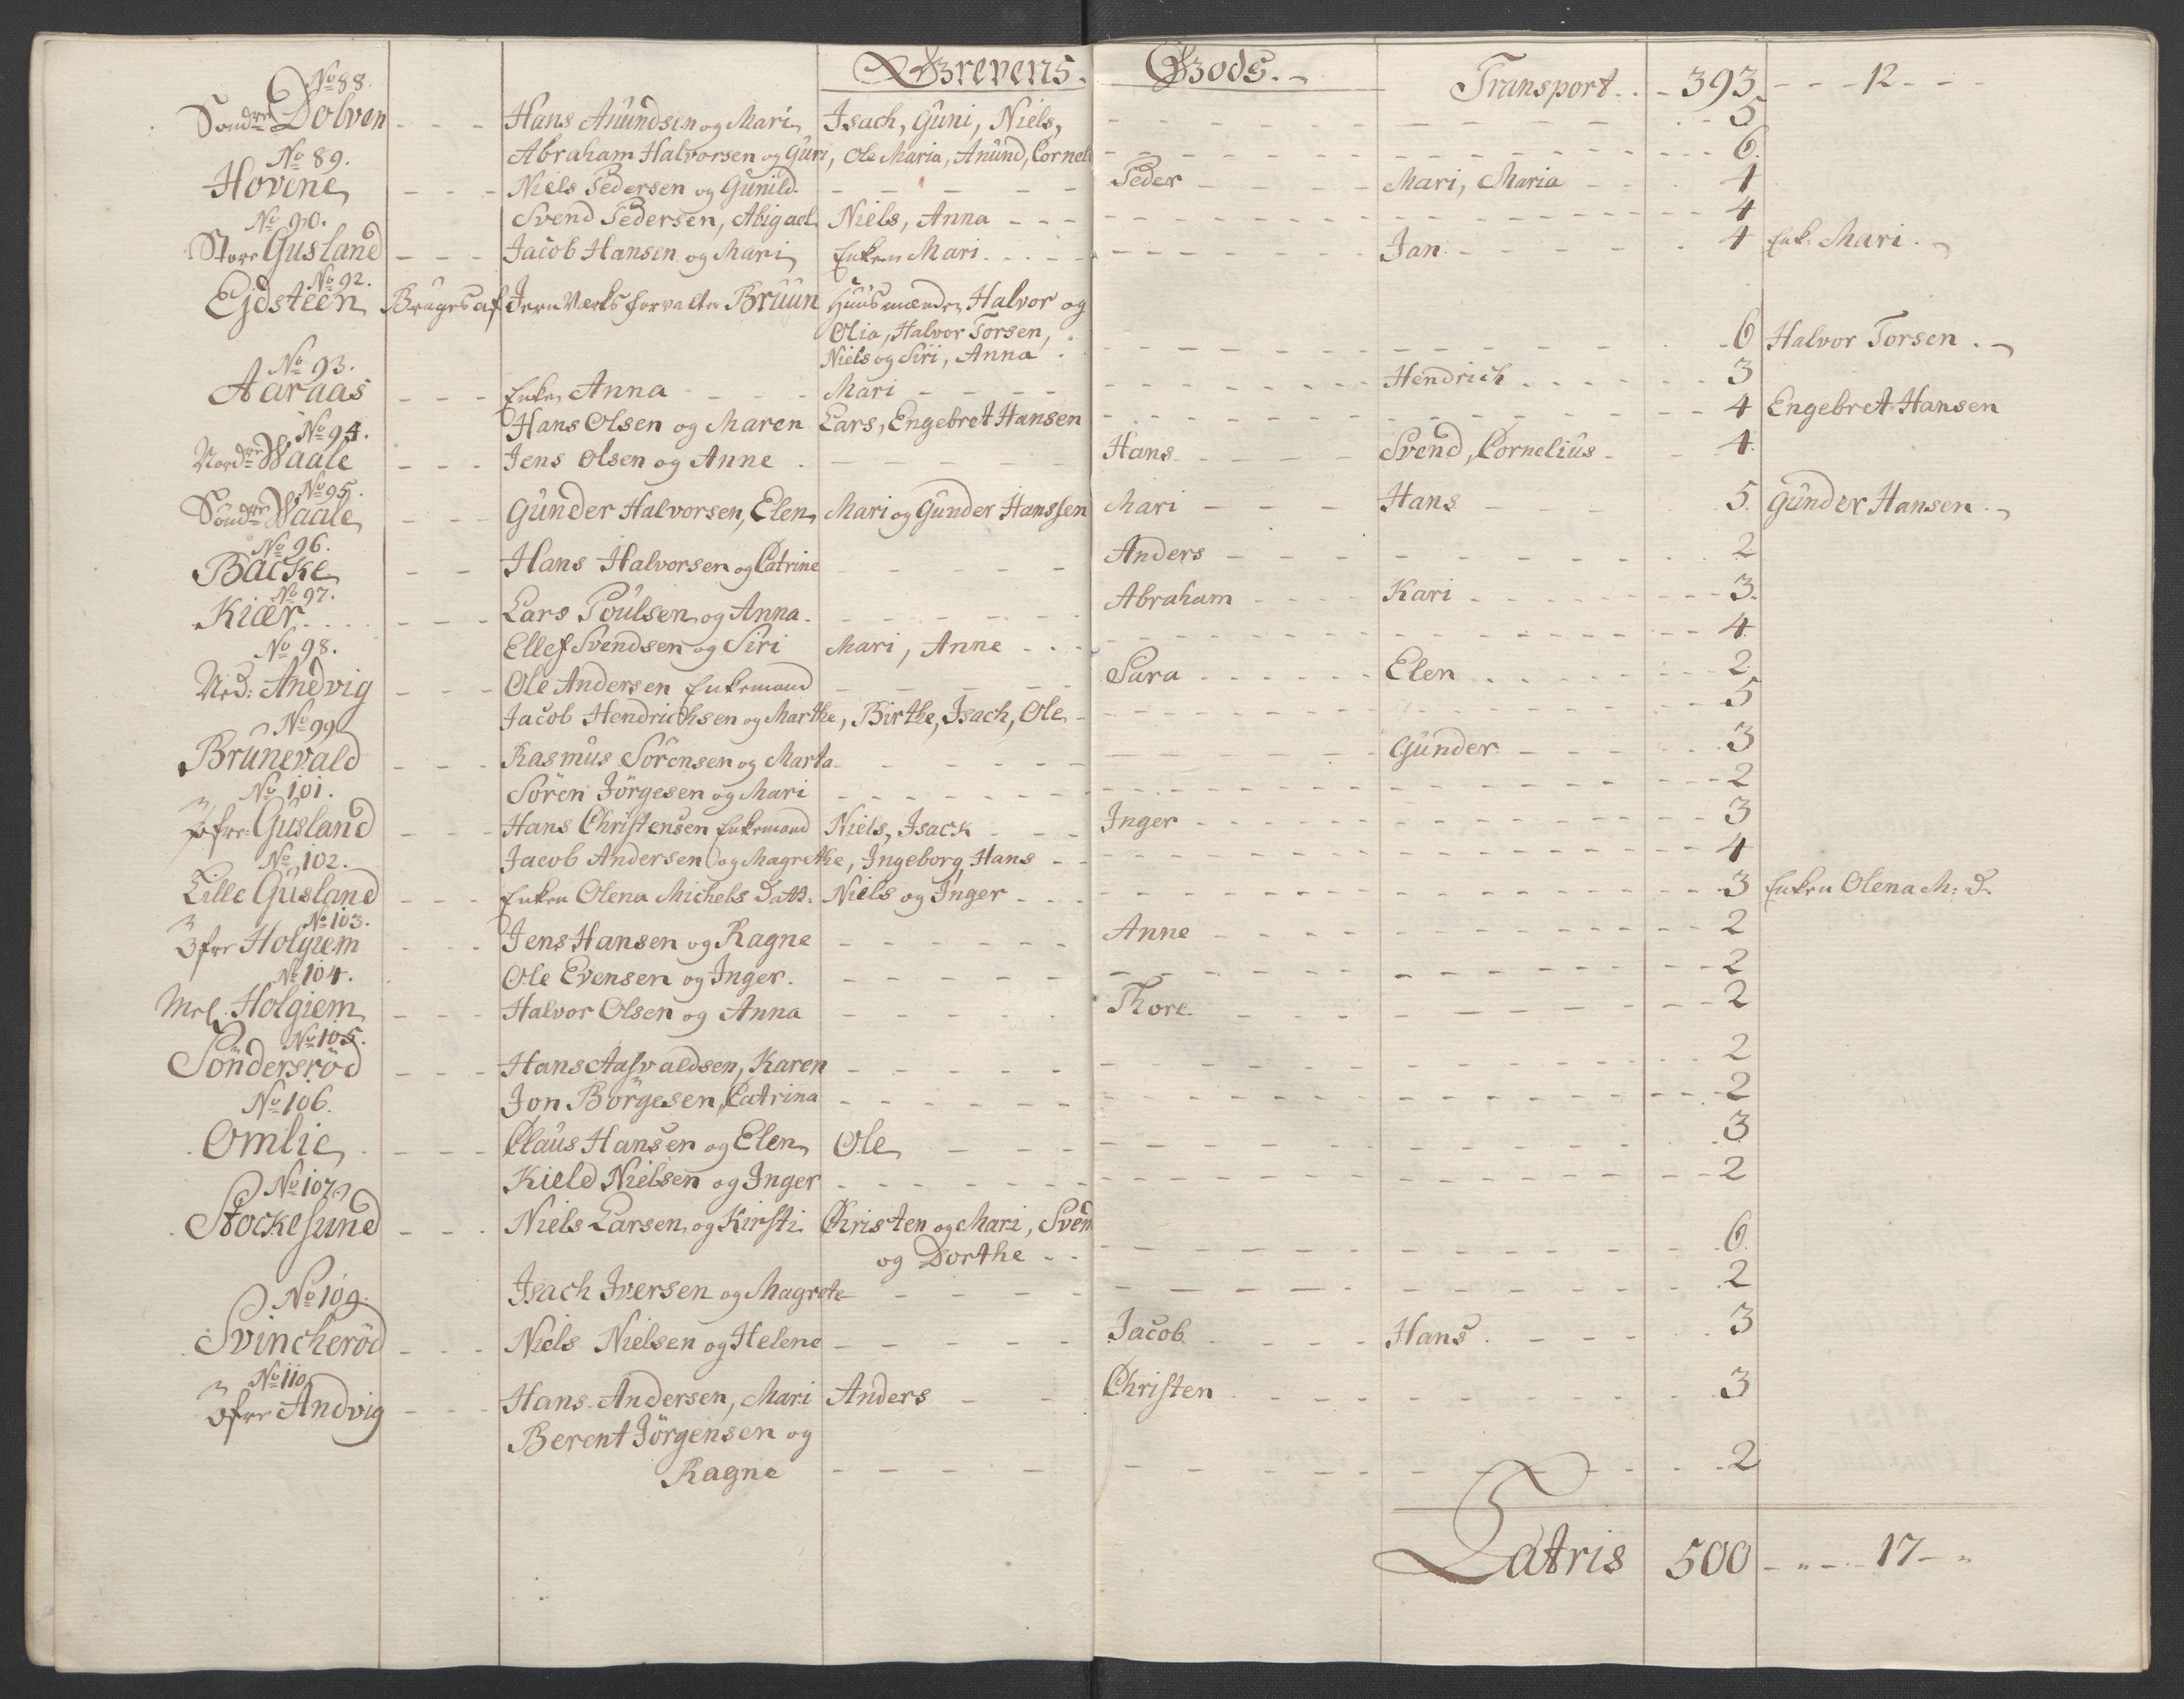 Grevens Gods.
Transport 393 12
No 88.
Söndre Dolven Hans Anundsen og Mari Isach, Guni, Niels, 5
Abraham Halvorsen og Guri, Ole Maria, Anund, Cornel 6.
No 89.
Hovene Niels Pedersen og Gunild. Peder Mari, Maria 4
Svend Pedersen, Abigael Niels, Anna 4
No 90.
Store Gusland Jacob Hansen og Mari Enken Mari Jan 4 Enk: Mari.
No 92.
Ejdsteen Bruges af Jern Værks forvalter Bruun Huusmænden Halvor og
Olia, Halvor Torsen,
Niels og Siri, Anna 6 Halvor Torsen.
No 93.
Aaraas Enken Anna Mari Hendrich 3
Hans Olsen og Maren Lars, Engebret Hansen 4 Engebret Hansen
No 94.
Nordre Waale Jens Olsen og Anne Hans Svend, Cornelius 4.
No 95.
Söndre Waale Gunder Halvorsen, Elen Mari og Gunder Hanssen Mari Hans 5. Gunder Hansen.
No 96.
Backe Hans Halvorsen og Catrine Anders 2
No 97.
Kiær Lars Poulsen og Anna. Abraham Kari 3.
Ellef Svendsen og Siri Mari, Anne 4.
No 98.
Ned: Andvig Ole Andersen Enkemand Sara Elen 2
Jacob Hendrichsen og Marthe, Birthe, Isach, Ole 5
No 99
Brunevald Rasmus Sörensen og Marta Gunder 3
Sören Jörgesen og Mari 2
No 101.
Öfre Gusland Hans Christensen Enkemand Niels, Isack Inger 3
Jacob Andersen og Magrethe, Ingeborg, Hans 4
No 102.
Lille Gusland Enken Olena Michels Datt: Niels og Inger 3 Enken Olena M: D.
No 103.
Öfre Holgiem Jens Hansen og Ragne Anne 2
Ole Evensen og Inger. 2
No 104.
Mel. Holgiem Halvor Olsen og Anna Thore 2
No 105.
Söndersröd Hans Aasvaldsen, Karen 2
Jon Börgesen, Catrina 2
No 106.
Omlie Claus Hansen og Elen Ole 3
Kield Nielsen og Inger 2
No 107
Stockesund Niels Larsen og Kirsti Christen og Mari, Sven
og Dorthe 6.
Isach Iversen og Magrete 2
No 109.
Svincheröd Niels Nielsen og Helene Jacob Hans 3
No 110
Öfre Andvig Hans Andersen, Mari Anders Christen 3
Berent Jörgensen og
Ragne 2
Latris 500 17